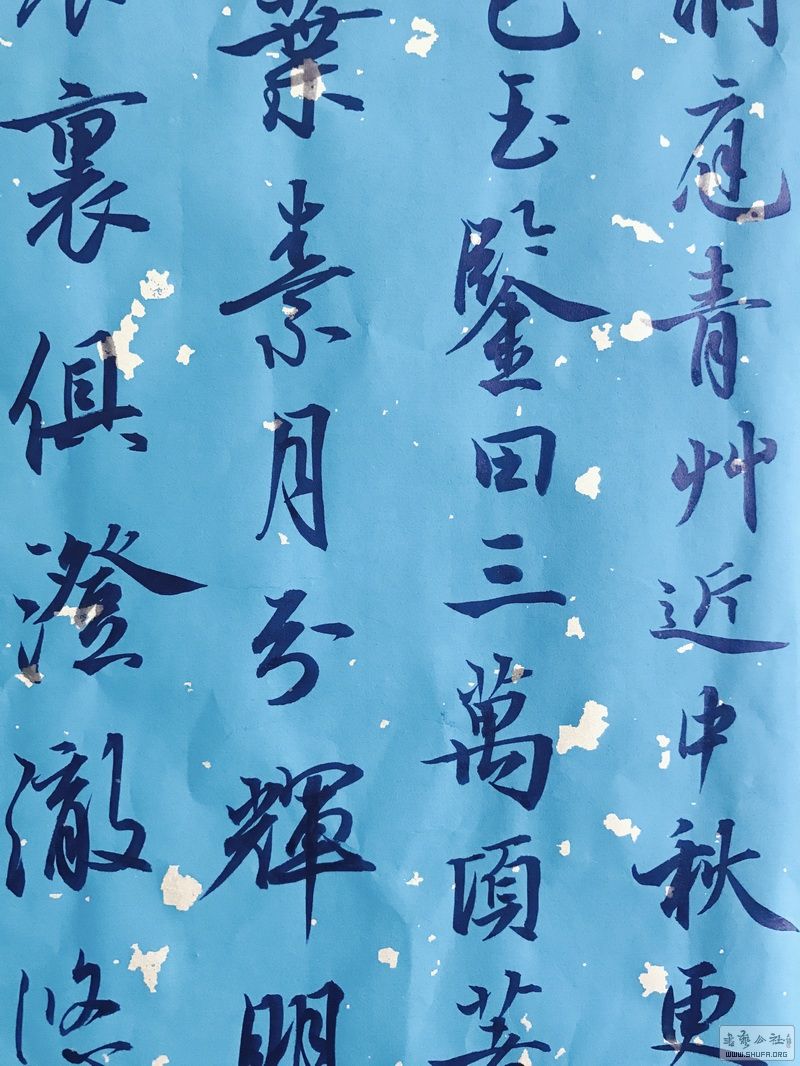 洞庭青艸近中秋更
色玉鑒田三萬頃著
葉素月分輝明
表裏俱澄澈悠
书艺公社
WWW.SHUFA.ORG